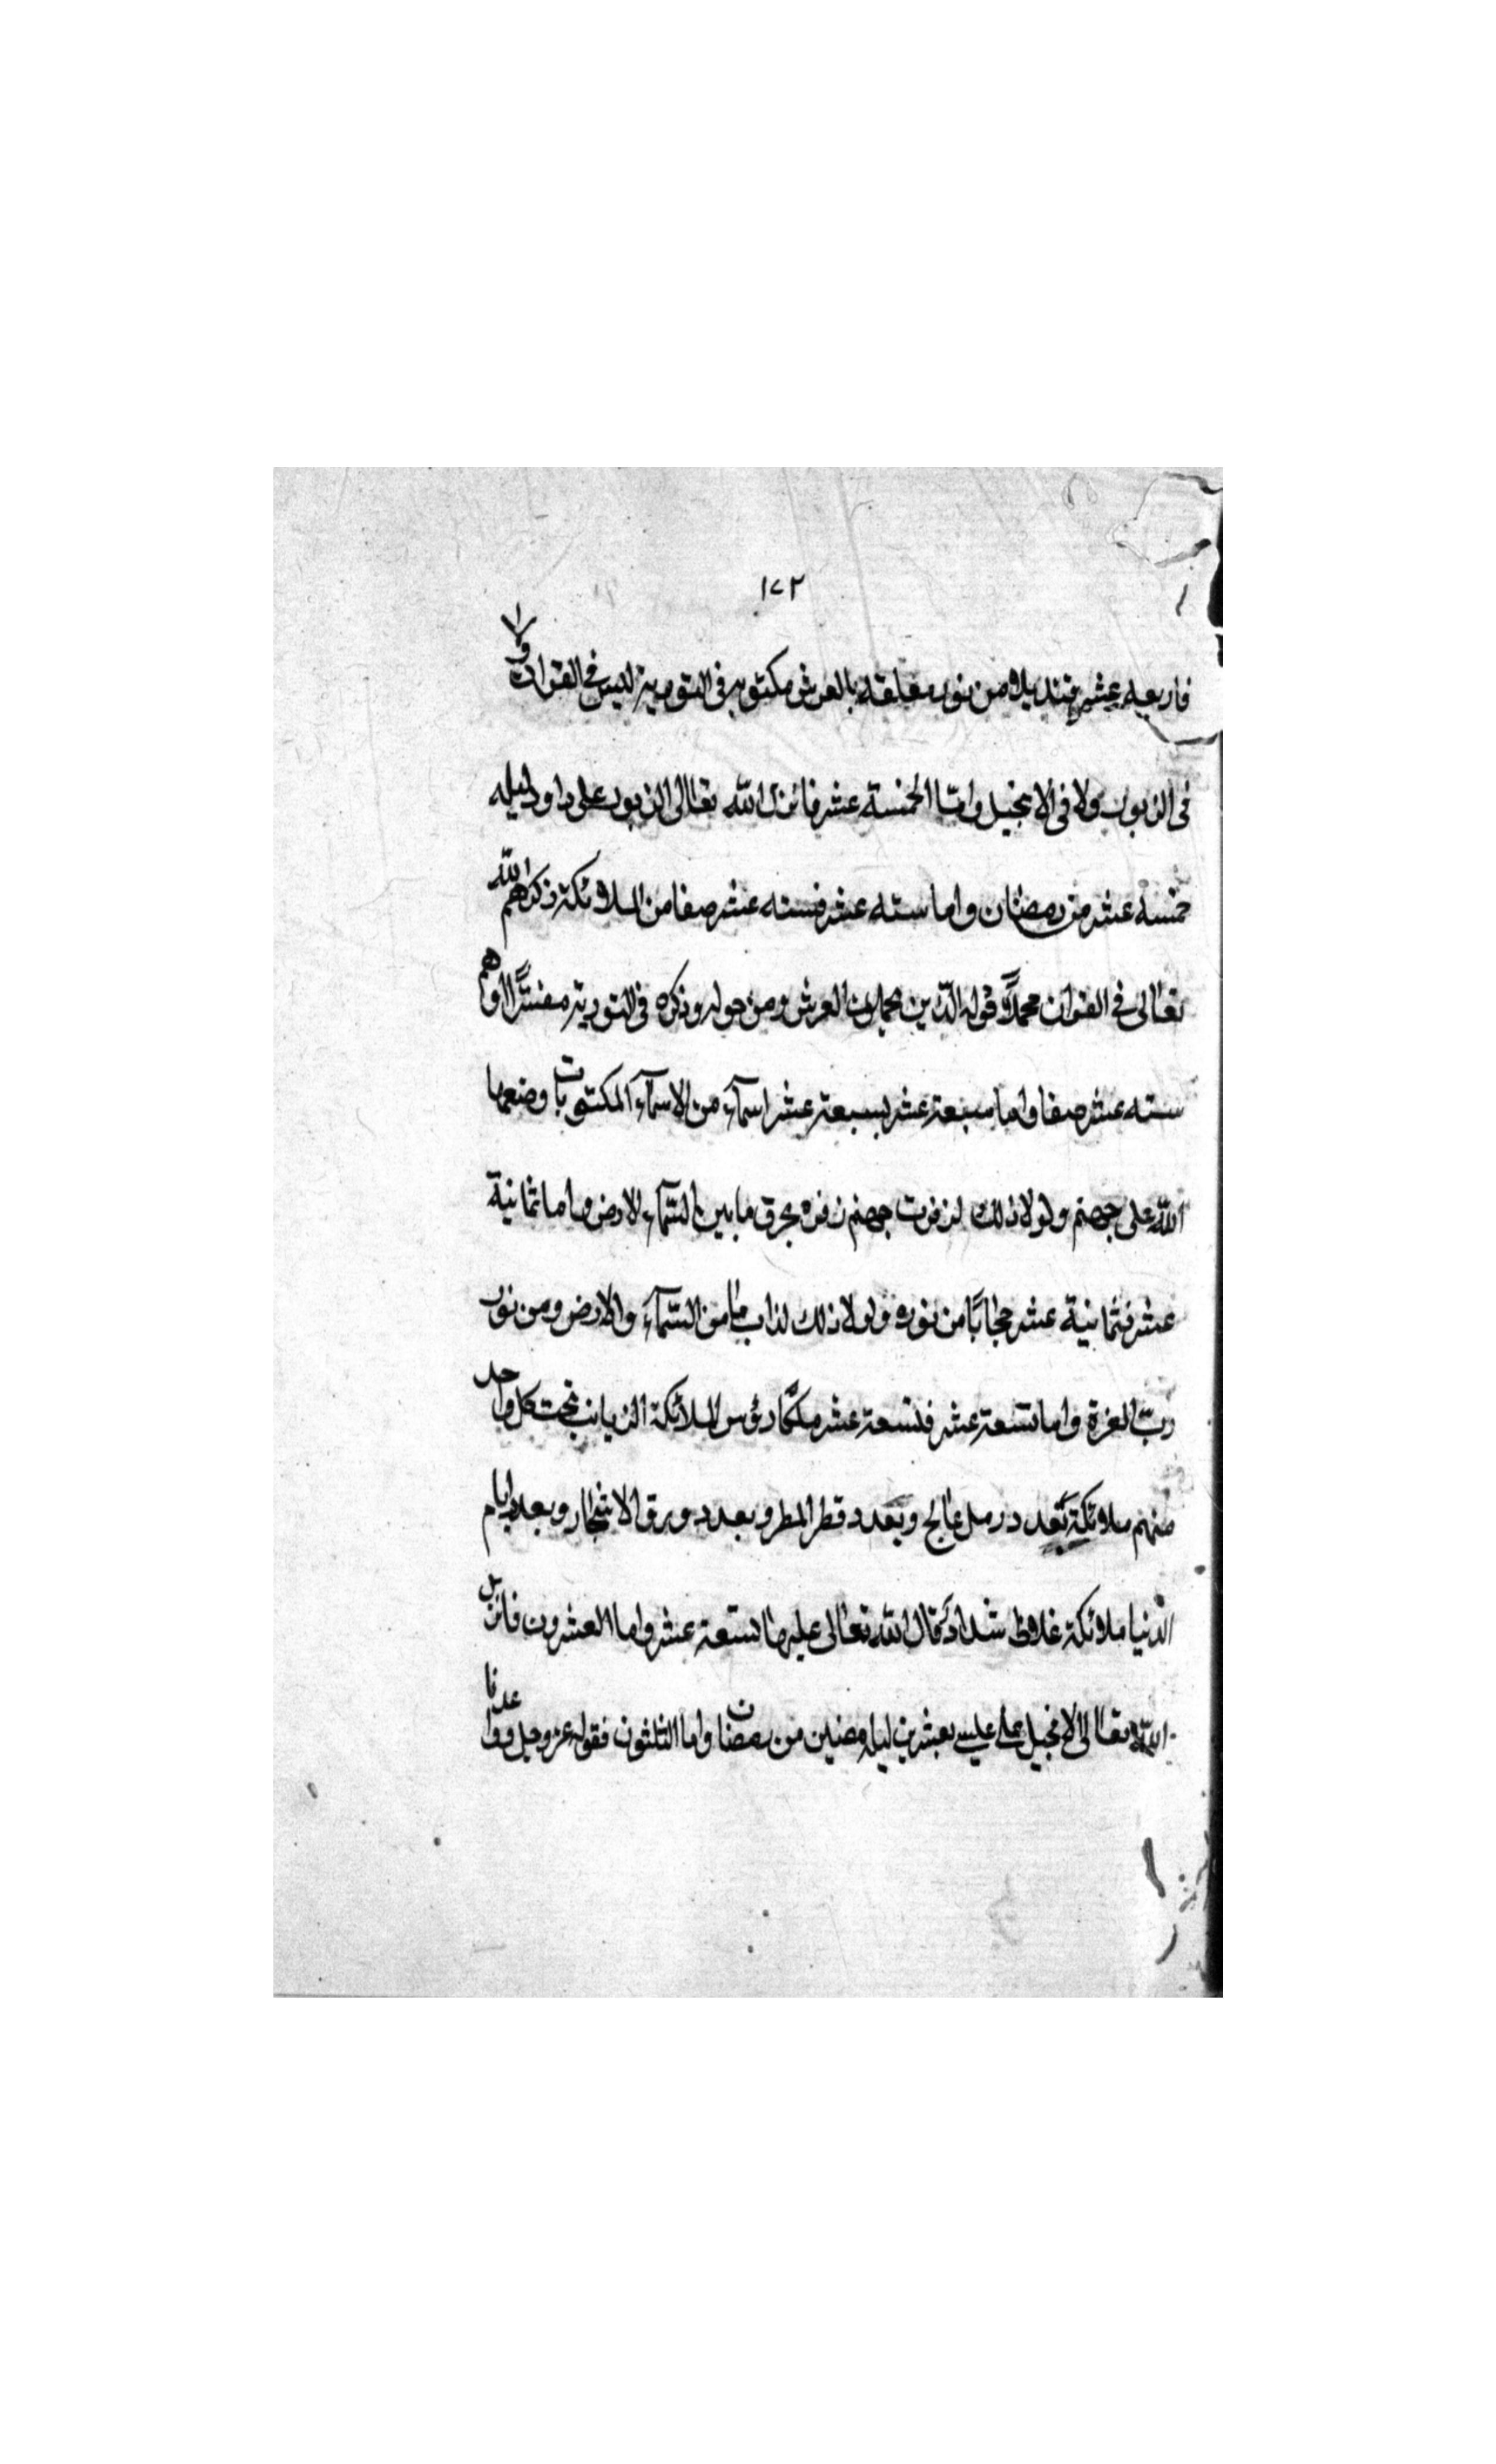 ١٧٢
فاربعه عشر قنديلا من نور معلقه بالعرش مكتوبه فى التورية ليس فى القران ولا
فى الزبور ولا فى الانجيل وامّا الخمسة عشر فانزل الله تعالى الزبور على داود ليله
خمسه عشر من رمضان واما سته عشر فسته عشر صفا من الملائكة ذكرهم الله
تعالى فى القران محمدا قوله الّذين يحملون العرش ومن حوله وذكره فى التورية مفسّرًا وهم
سته عشر صفا واما سبعة عشر بسبعة عشر اسمآء من الاسمآء المكتوبات وضعها
الله على جهنم ولو لا ذلك لزفرت جهنم زفره يحرق ما بين السّمآء الارض واما ثمانية
عشر فثمانية عشر حجابًا من نوره ولو لا ذلك لذاب ما من السّمآء والارض ومن نور
ربّ العزة واما تسعة عشر فتسعة عشر ملكًا رؤس الملائكة الزبانيه تحت كل واحد
منهم ملائكة بعدد رمل عالج وبعدد قطر المطر وبعدد ورق الاشجار وبعدد ايام
الدّنيا ملائكة غلاظ شداد كما قال الله تعالى عليها تسعة عشر واما العشرون فانزل
الله تعالى الانجيل على عليسى بعشرين ليله مضين من رمضان واما الثلثون فقوله عز وجل وواعدنا